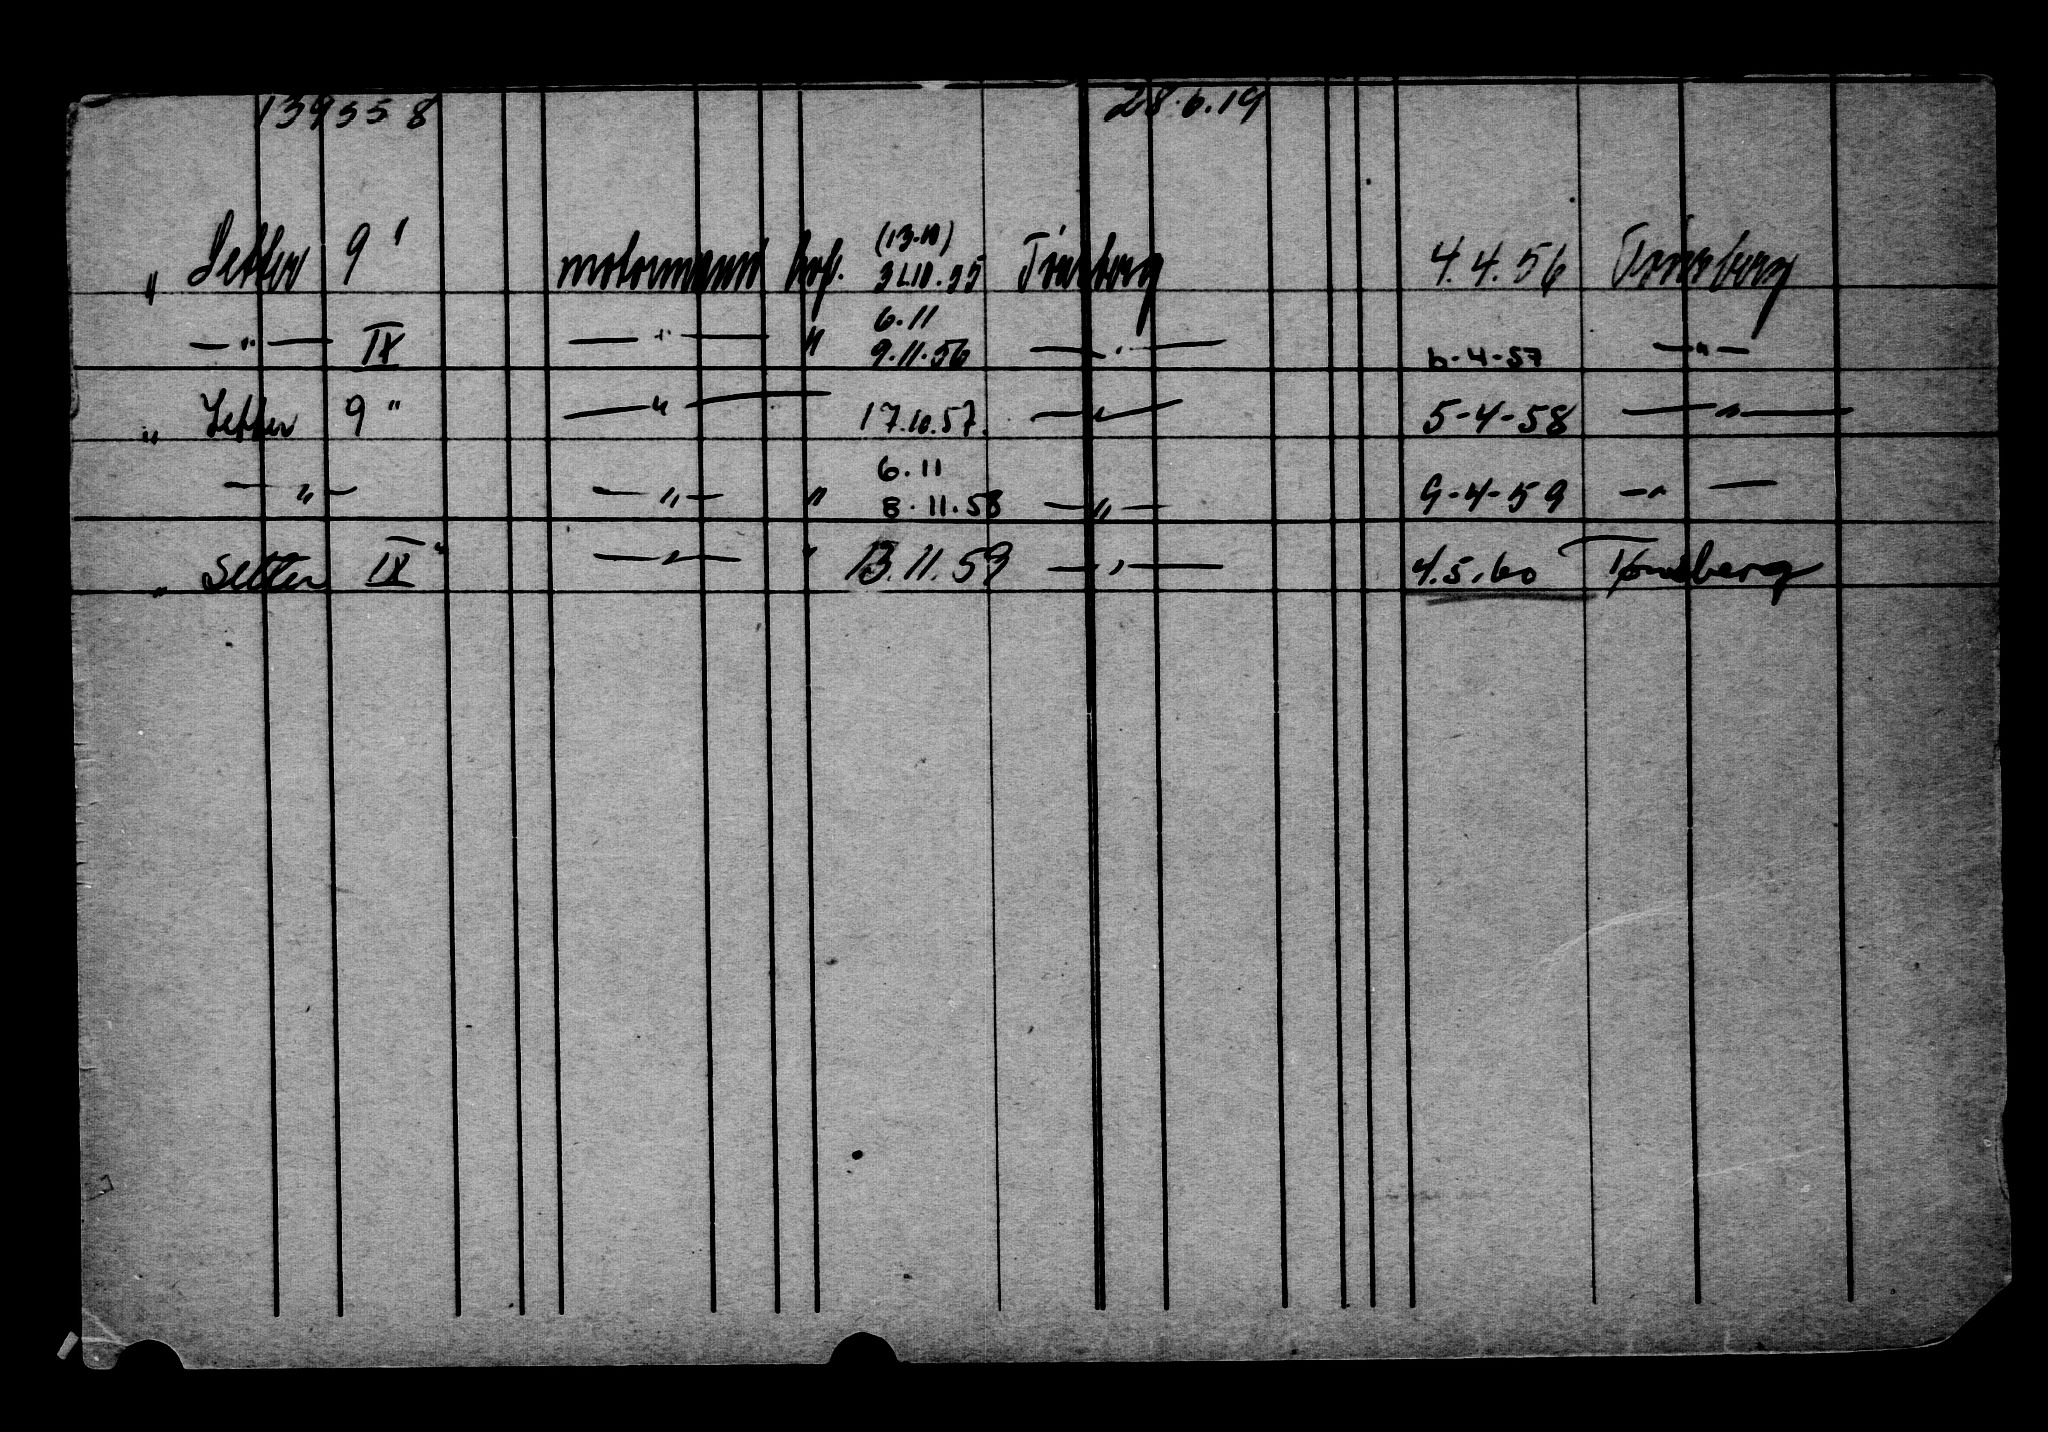 139558 28.6.19
(13.10)
" Setter 9" motormann hvf. 31.10.55 Tönsberg 4.4.56 Tönsberg
6.11
— " — IX — " — " 9.11.56 — " — 6-4-57 — " —
" Setter 9" — " — 17.10.57. — " — 5-4-58 — " —
6.11
— " — — " — " 8.11.58 — " — 9-4-59 — " —
" Setter IX" — " — " 13.11.59 — " — 4.5.60 Tønsberg